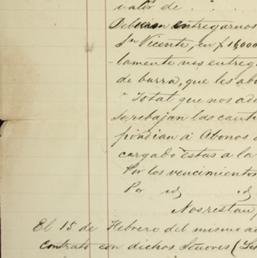 valor de
Debian entregarnos
Sn Vicente, en $ 18,000
lamente nos entrega
de barra, que les abo
Total que nos ad
se rebajan las cant
pondian á Abonos
cargado estas a la
Por los vencimientos
Por id id
Nos restan
El 15 de Febrero del mismo a
contrato con dichos Señores (